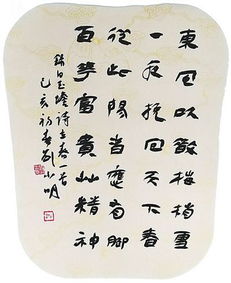 東風吹散梅梢雪
一夜挽回天下春
從此陽春應有腳
百華富貴艸精神
錄白玉蟾詩立春一首
己亥初春劉小明